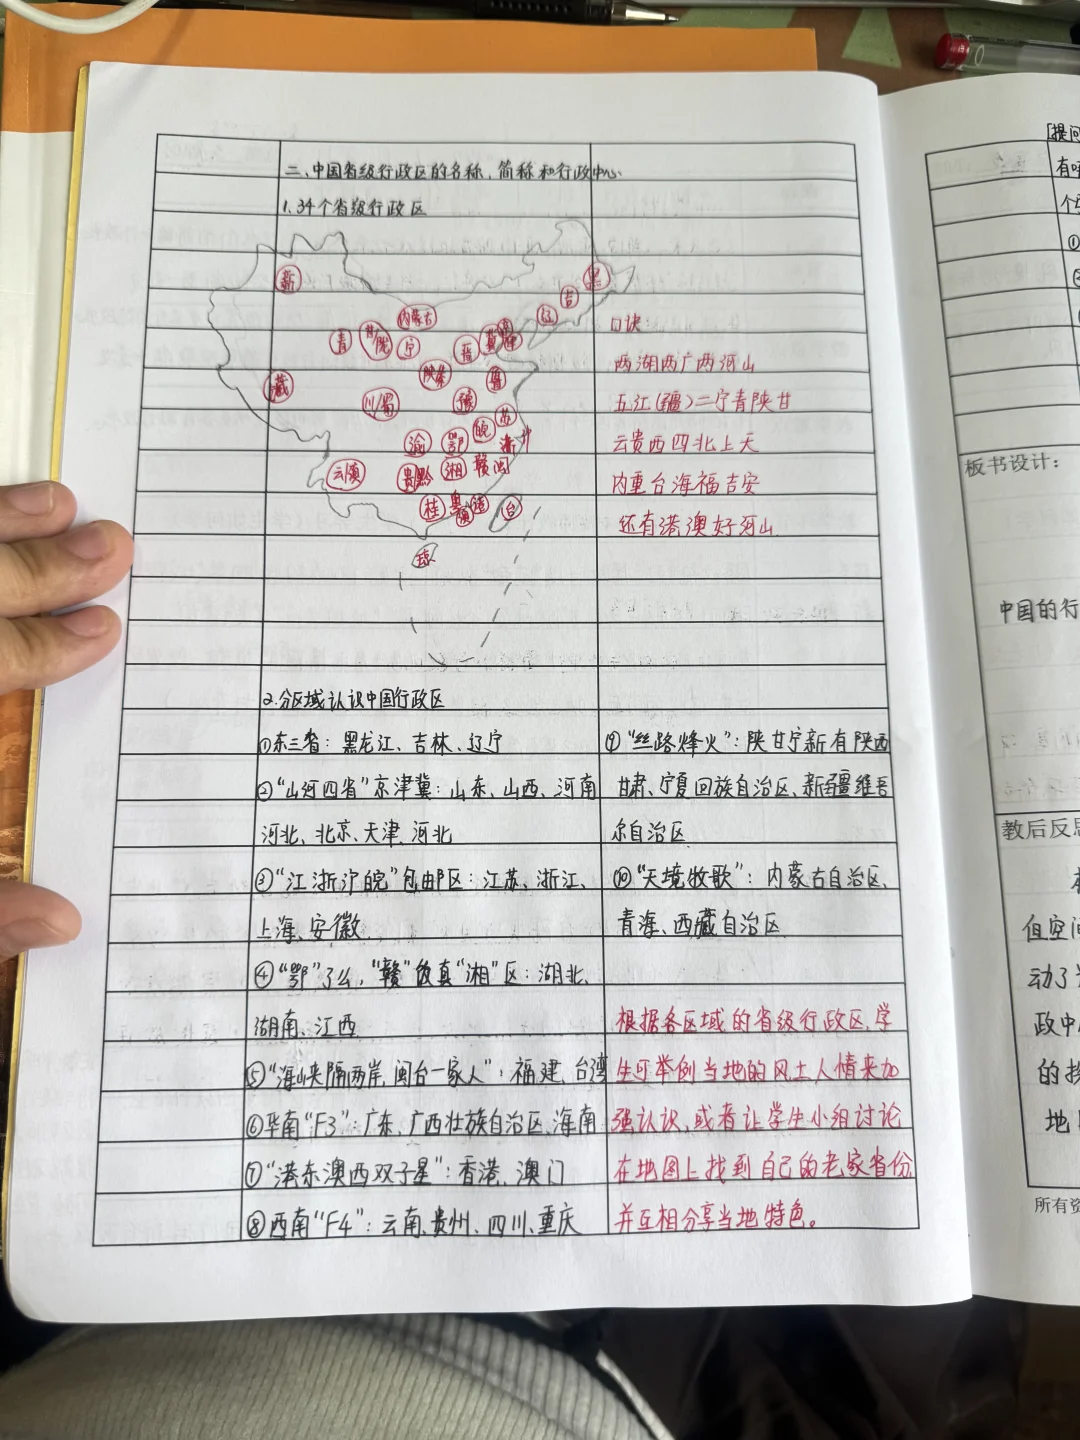 二、中国省级行政区的名称、简称和行政中心
1.34个省级行政区
新
黑
吉
辽
内蒙古
青
甘陇
宁
晋
冀
藏
陕秦
鲁
川/蜀
豫
苏
皖
浙沪
渝
鄂
云滇
贵黔
湘
赣
闽
桂
粤
港
澳
台
琼
口诀
两湖两广两河山
五江(疆)二宁青陕甘
云贵西四北上天
内重台海福吉安
还有港澳好河山
2.分区域认识中国行政区
①东三省：黑龙江、吉林、辽宁
②“山河四省”京津冀：山东、山西、河南
河北、北京、天津、河北
③“江浙沪皖”包邮区：江苏、浙江、
上海、安徽
④“鄂”了么，“赣”饭真“湘”区：湖北、
湖南、江西
⑤“海峡隔两岸,闽台一家人”：福建、台湾
⑥华南“F3”：广东、广西壮族自治区、海南
⑦“港东澳西双子星”：香港、澳门
⑧西南“F4”：云南、贵州、四川、重庆
⑨“丝路烽火”：陕甘宁新有陕西
甘肃、宁夏回族自治区、新疆维吾
尔自治区
⑩“天境牧歌”：内蒙古自治区、
青海、西藏自治区
根据各区域的省级行政区,学
生可举例当地的风土人情来加
强认识,或者让学生小组讨论
在地图上找到自己的老家省份
并互相分享当地特色。
[提问
有
个
①
板书设计：
中国的行
教后反思
但空间
动了
政中
的
地
所有资